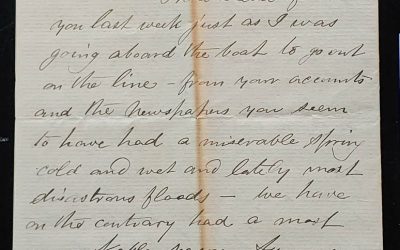 you last week just as I was
going aboard the boat to go out
on the line - from your accounts
and the newspapers you seem
to have had a miserable Spring
cold and wet and lately most
disastrous floods - we have
on the contrary had a most